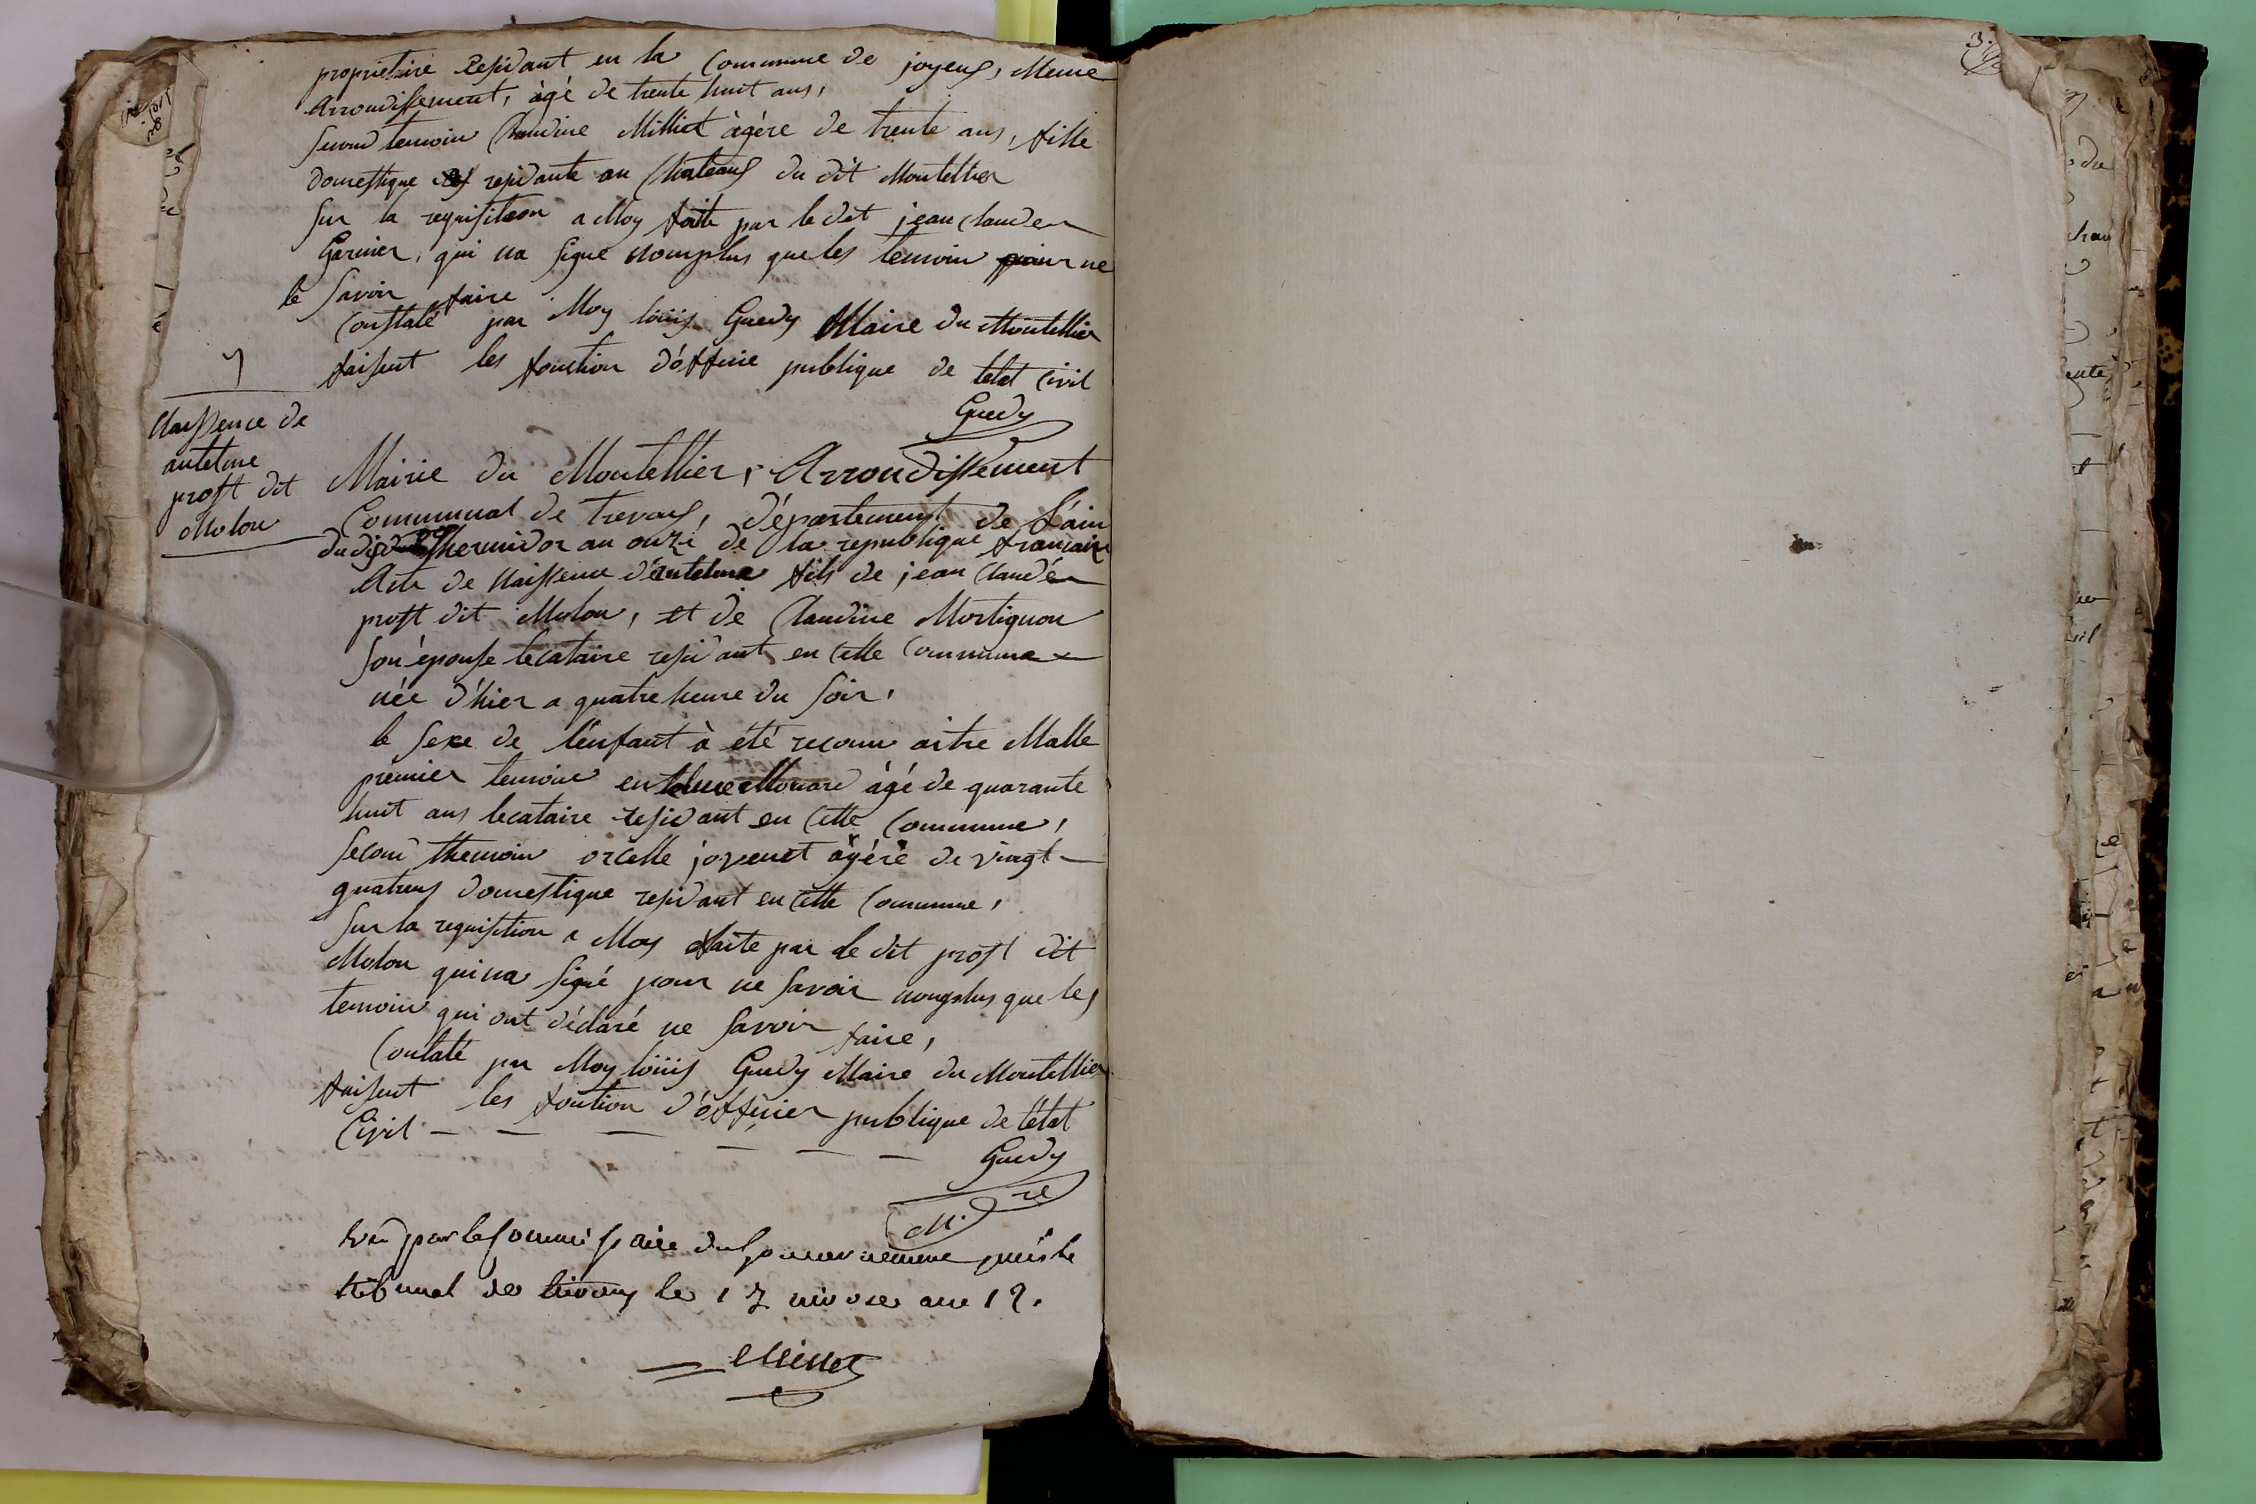 proprietaire residant en la Commune de joyeux, Meme
Arroundissement, àgé de trente huit ans,
second temoin Claudine Milliet àgére de trente ans, fille
domestique residante au Chateaux du dit Montellier
sur la requisitison a Moy faite par le dit jean Claude
Garnier, qui na signe nomplus que les temoin pour ne
le savoir faire
Constaté par Moy loüis Guedy Maire du Montellier
faisent les fonction d'officie publique de letat Civil
Guedy
7
Naissence de
antelme
prost dit
Molon
Mairie du Montellier, Arroundissement
Communal de trevoux, département de l'ain
du thermidor an onze de la republique francaise
Acte de Naissence d'entelme fils de jean Claude
prost dit Molon, et de Claudine Mortignon
son épouse lecataire resident en cette Commune
née d'hier a quatre heure du soir,
le sexe de l'enfant à été reconu aitre Malle
premier temoin entelme Monard àgé de quarante
huit ans lecataire residant en cette Commune,
second themoin joyenet àgére de vingt
quatrens domestique residant en cette Commune,
sur la requisition a Moy faite par le dit prost dit
Molon qui na signé pour ne savoir nomplus que les
temoin qui ont déclaré ne savoir faire,
Contaté par Moy loüis Guedy Maire du Montellier
faisent les fontion d'officier publique de l'état
Civil
Guedy
M. re
vu par le Commissaire du gouvernement près le
tribunal de trevoux le 17 nivose an 12.